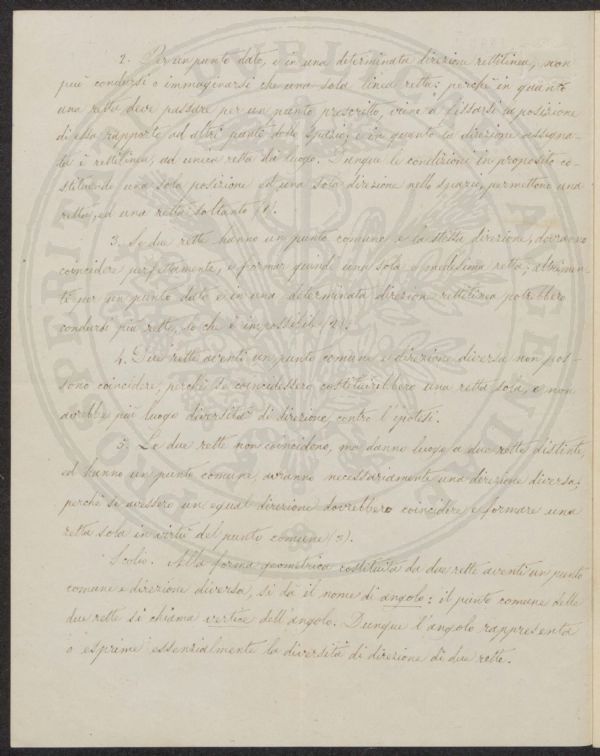 2. Per un punto dato, e in una determinata direzione rettilinea, non
può condursi o immaginarsi che una sola linea retta; perchè in quanto
una retta deve passare per un punto prescritto, viene a fissarsi la posizione
di essa rapporto ad altri punti dello spazio; e in quanto la direzione assegna-
ta è rettilinea, ad unica retta dà luogo. Dunque le condizioni in proposito co-
stituendo una sola posizione ed una sola direzione nello spazio, permettono una
retta, ed una retta soltanto (1).
3. Se due rette hanno un punto comune e la stessa direzione, dovranno
coincidere perfettamente, e formar quindi una sola e medesima retta; altrimen-
ti per un punto dato e in una determinata direzione rettilinea potrebbero
condursi più rette, lo che è impossibile (2).
4. Due rette aventi un punto comune e direzione diversa non pos-
sono coincidere, perchè se coincidessero costituirebbero una retta sola, e non
avrebbe più luogo diversità di direzione contro l'ipotesi.
5. Se due rette non coincidono, ma danno luogo a due rette distinte,
ed hanno un punto comune, avranno necessariamente una direzione diversa;
perchè se avessero un egual direzione dovrebbero coincidere e formare una
retta sola in virtù del punto comune (3).
Scolio. Alla forma geometrica costituita da due rette aventi un punto
comune e direzione diversa, si dà il nome di angolo: il punto comune delle
due rette si chiama vertice dell'angolo. Dunque l'angolo rappresenta
o esprime essenzialmente la diversità di direzione di due rette.